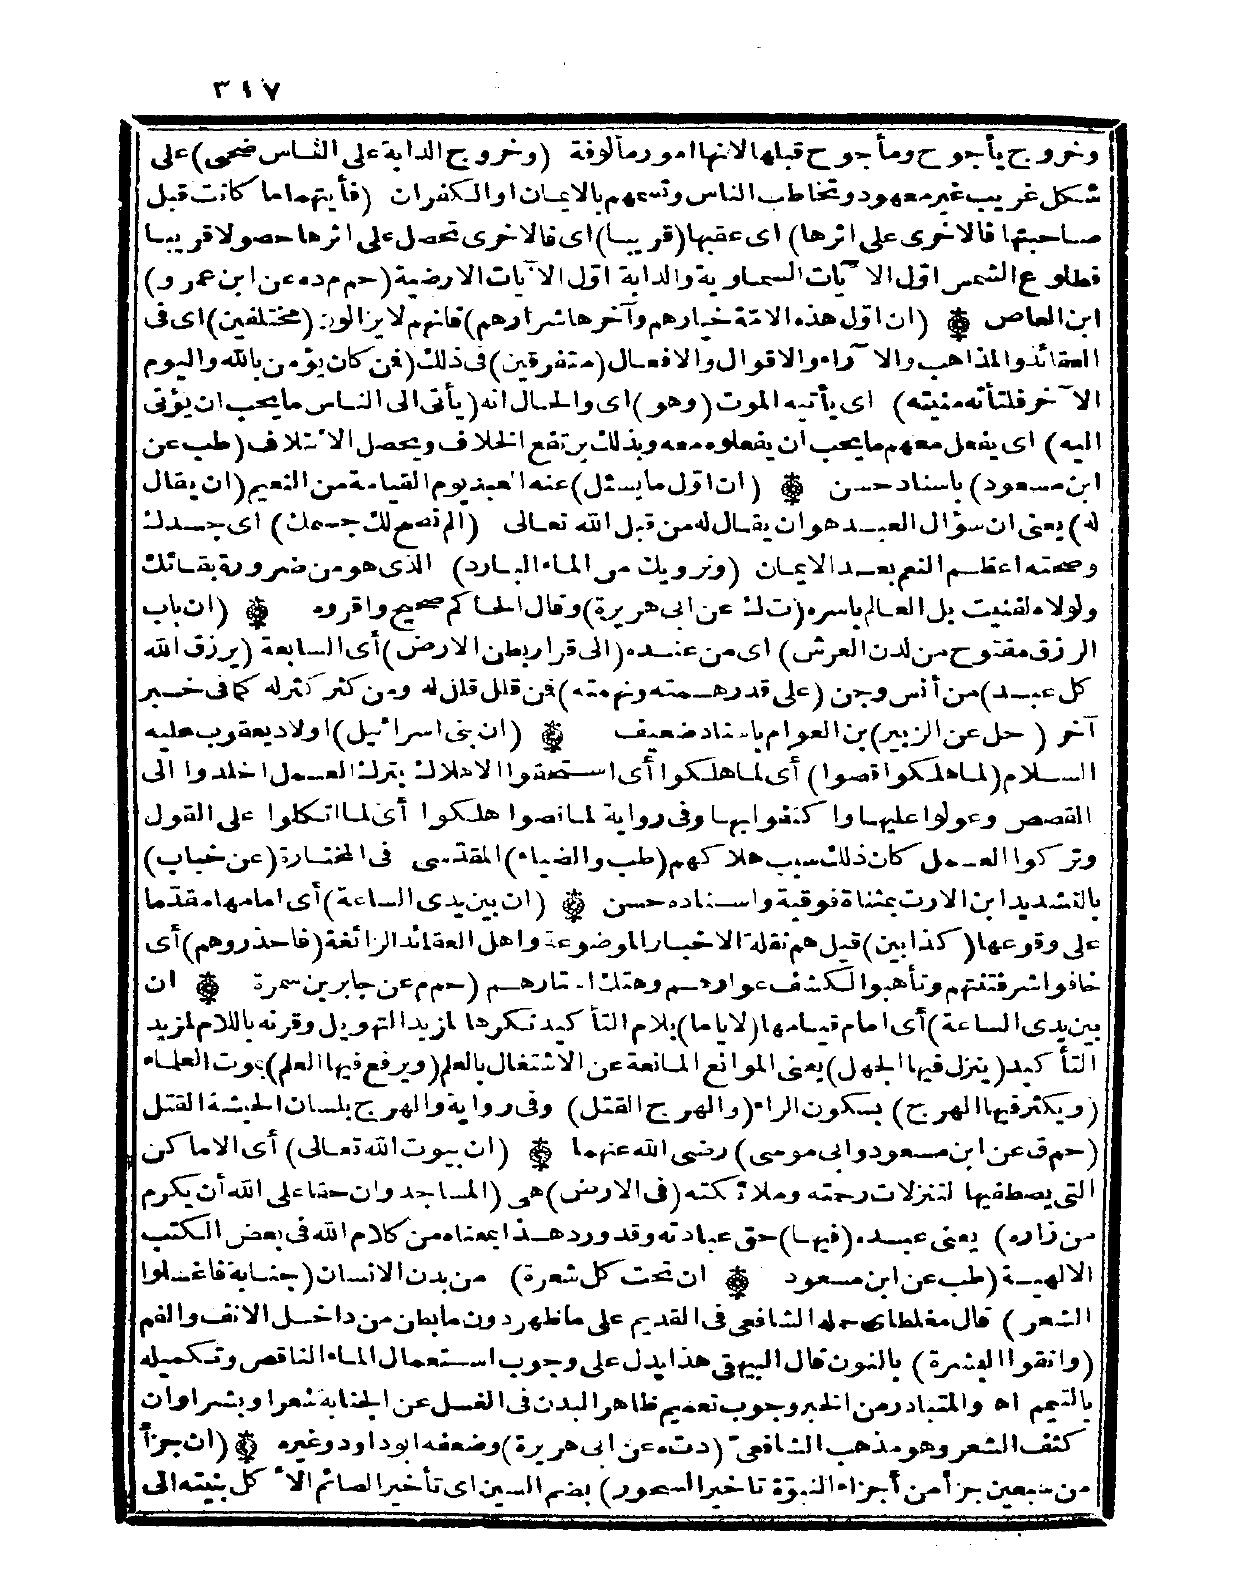 ٣١٧
وخروج يأجوج ومأجوج قبلها لانها امور مألوفة (وخروج الدابة على الناس ضحى) على
شكل غريب غير معهود وتخاطب الناس وتسمهم بالايمان او الكفران (فأيتهما ما كانت قبل
صاحبتها فالاخرى على اثرها) اى عقبها (قريبا) اى فالاخرى تحصل على اثرها حصولا قريبا
فطلوع الشمس اوّل الآيات السماوية والدابة اوّل الآيات الارضية (حم م د ه عن ابن عمرو)
ابن العاص ۞ (ان اوّل هذه الامّة خيارهم وآخرها شرارهم) فانهم لا يزالون (مختلفين) اى فى
العقائد والمذاهب والآراء والاقوال والافعال (متفرقين) فى ذلك (فمن كان يؤمن بالله واليوم
الآخر فلتأته منيته) اى يأتيه الموت (وهو) اى والحال انه (يأتى الى الناس ما يحب ان يؤتى
اليه) اى يفعل معهم ما يحب ان يفعلوه معه وبذلك يرتفع الخلاف ويحصل الائتلاف (طب عن
ابن مسعود) باسناد حسن ۞ (ان اوّل ما يسئل) عنه (العبد يوم القيامة من النعيم (ان يقال
له) يعنى ان سؤال العبد هو ان يقال له من قبل الله تعالى (الم نصح لك جسمك) اى جسدك
وصحته اعظم النعم بعد الايمان (ونرويك من الماء البارد) الذى هو من ضرورة بقائك
ولولاه لفنيت بل العالم باسره (ت ك عن ابى هريرة) وقال الحاكم صحيح واقروه ۞ (ان باب
الرزق مفتوح من لدن العرش) اى من عنده (الى قرار بطن الارض) أى السابعة (يرزق الله
كل عبد) من أنس وجن (على قدر همته ونهمته) فمن قلل قلل له ومن كثر كثر له كما فى خبر
آخر (حل عن الزبير) بن العوام باسناد ضعيف ۞ (ان بنى اسرائيل) اولاد يعقوب عليه
السلام (لما هلكوا قصوا) أى لما هلكوا أى استحقوا الاهلاك بترك العمل اخلدوا الى
القصص وعولوا عليها واكتفوا بها وفى رواية لما قصوا هلكوا أى لما اتكلوا على القول
وتركوا العمل كان ذلك سبب هلاكهم (طب والضياء) المقدسى فى المختارة (عن خباب)
بالتشديد ابن الارت بمثناة فوقية واسناده حسن ۞ (ان بين يدى الساعة) أى امامها مقدّما
على وقوعها (كذابين) قيل هم نقلة الاخبار الموضوعة واهل العقائد الزائغة (فاحذروهم) أى
خافوا شر فتنتهم وتأهبوا لكشف عوارهم وهتك استارهم (حم م عن جابر بن سمرة ۞ ان
بين يدى الساعة) أى امام قيامها (لاياما) بلام التأكيد نكرها لمزيد التهويل وقرنه باللام لمزيد
التأكيد (ينزل فيها الجهل) يعنى الموانع المانعة عن الاشتغال بالعلم (ويرفع فيها العلم) بموت العلماء
(ويكثر فيها الهرج) بسكون الراء (والهرج القتل) وفى رواية والهرج بلسان الحبشة القتل
(حم ق عن ابن مسعود وابى موسى) رضى الله عنهما ۞ (ان بيوت الله تعالى) أى الاماكن
التى يصطفيها لتنزلات رحمته وملائكته (فى الارض) هى (المساجد وان حقا على الله أن يكرم
من زاره) يعنى عبده (فيها) حق عبادته وقد ورد هذا بمعناه من كلام الله فى بعض الكتب
الالهية (طب عن ابن مسعود ۞ ان تحت كل شعرة) من بدن الانسان (جنابة فاغسلوا
الشعر) قال مغلطاى حمله الشافعى فى القديم على ما ظهر دون ما بطن من داخل الانف والفم
(وانقوا البشرة) بالنون قال البيهقى هذا يدل على وجوب استعمال الماء الناقص وتكميله
بالتيمم اه والمتبادر من الخبر وجوب تعميم ظاهر البدن فى الغسل عن الجنابة شعرا وبشرا وان
كثف الشعر وهو مذهب الشافعىّ (د ت ه عن ابى هريرة) وضعفه ابو داود وغيره ۞ (ان جزأ
من سبعين جزأ من أجزاء النبوّة تاخير السحور) بضم السين اى تأخير الصائم الأكل بنيته الى